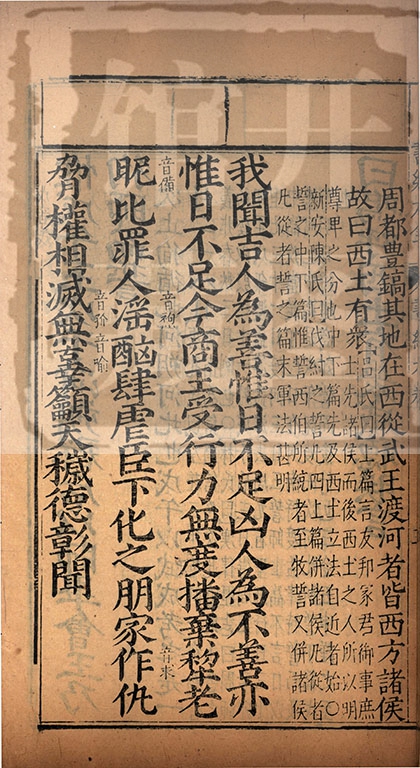 周都豊鎬其地在西從武王渡河者皆西方諸侯
故曰西土有衆
呂氏曰上篇言友邦冢君御事庶
士先諸侯而後西土之人所以明
尊卑之分也中下篇先及西土立法自近者始○
新安陳氏曰伐紂之誓凡四上篇併諸侯凡從者
誓之中下篇惟誓西伯所統者至牧誓又併諸侯
凡從者誓之篇末軍法甚明
我聞吉人為善惟日不足凶人為不善亦
惟日不足今商王受行力無度播棄犂老
音備
音袍
音來
昵比罪人淫酗肆虐臣下化之朋家作仇
音喻
脅權相滅無辜籲天穢德彰聞